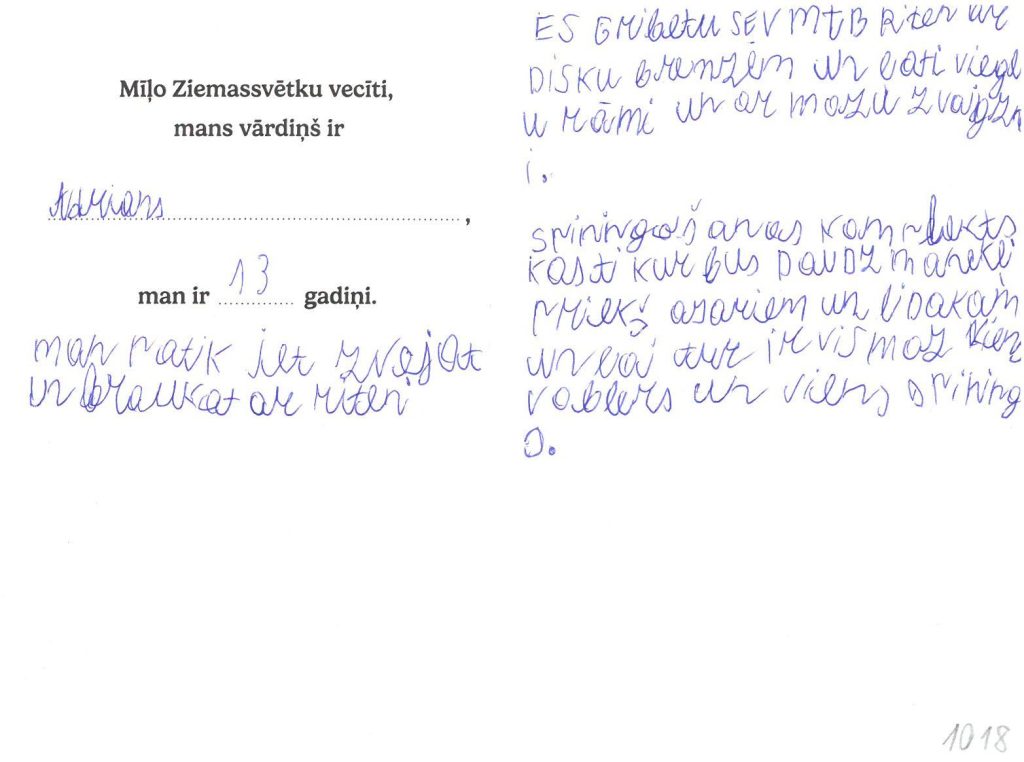 Mīļo Ziemassvētku vecīti,
mans vārdiņš ir
Adrians,
man ir 13 gadiņi.
man patik iet zvejot
un braukat ar riteni
ES Gribetu SEV MTB Riten ar
DISKU bremzēm un ļoti viegl
u rāmi un ar mazu zvaigzn
i.
spiningošanas komplekts
kasti kur būs DAUDZ mānekļi
priekš asariem un līdakām
un lai tur ir vismaz viens
voblers un viens spining
o.
1018